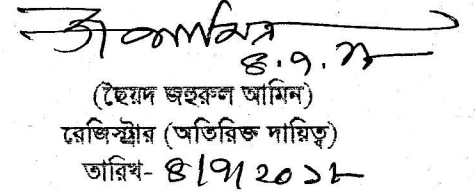 ৪.৭.১২
(ছৈয়দ জহুরুল আমিন)
রেজিস্ট্রার (অতিরিক্ত দায়িত্ব)
তারিখ- ৪/৭/২০১২